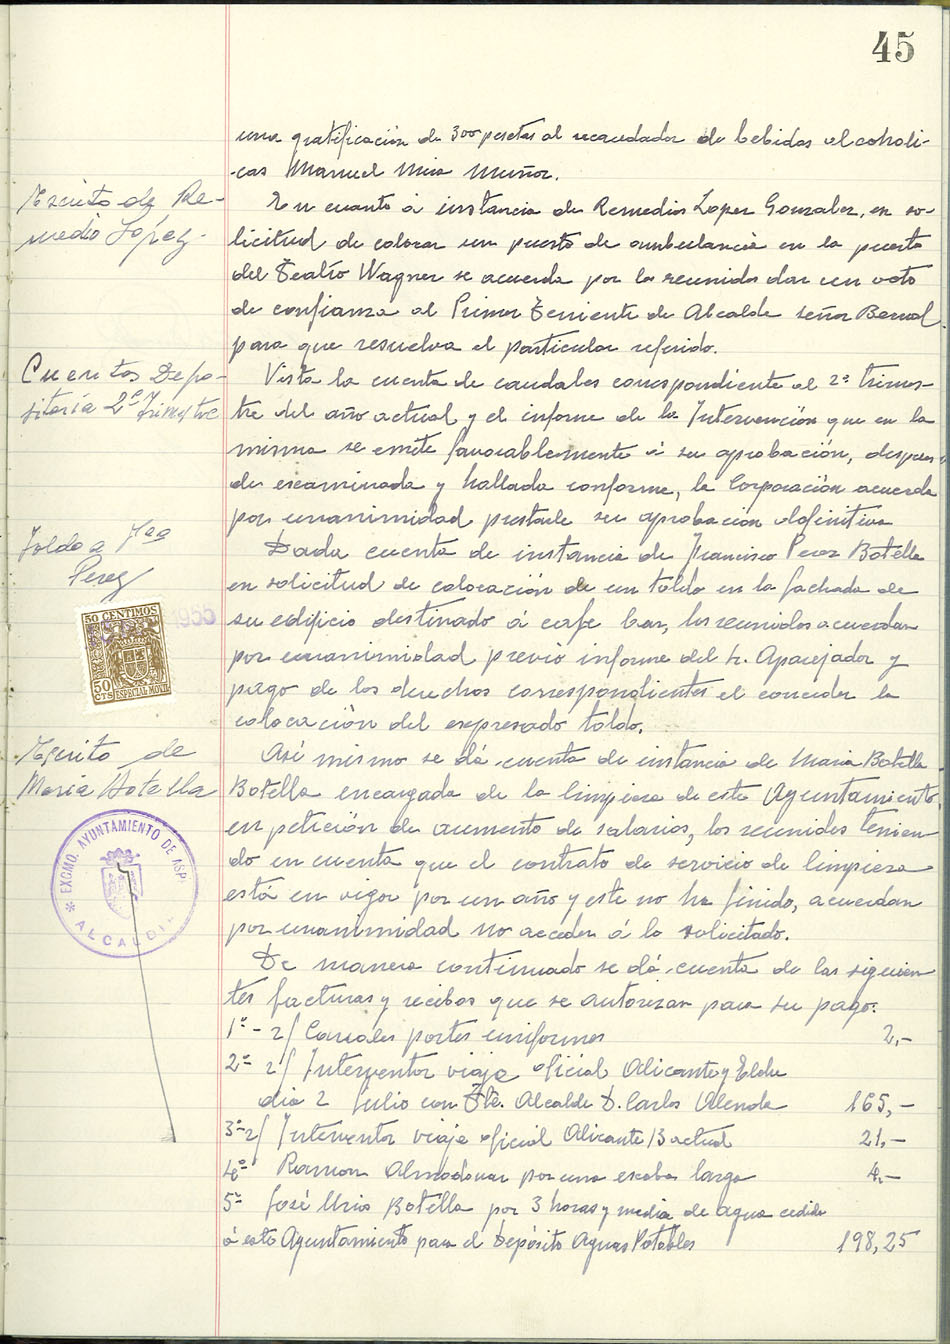 45
una gratificación de 300 pesetas al recaudador de bebidas alcoholi-
-cas Manuel Mira Muñoz.
Escrito de Re-
medio López.
En cuanto á instancia de Remedios Lopez Gonzalez, en so-
licitud de colocar un puesto de ambulancia en la puerta
del Teatro Wagner se acuerda por los reunidos dar un voto
de confianza al Primer Teniente de Alcalde señor Bernal
para que resuelva el particular referido.
Cuentas Depo-
sitaria 2º Trimestre
Vista la cuenta de caudales correspondiente al 2º trimes-
tre del año actual y el informe de la Intervención que en la
misma se emite favorablemente á su aprobación, despues
de escaminada y hallada conforme, la Corporación acuerda
por unanimidad prestarle su aprobación definitiva
Toldo a Fco
Perez
Dada cuenta de instancia de Francisco Perez Botella
en solicitud de colocación de un toldo en la fachada de
su edificio destinado á cafe bar, los reunidos acuerdan
por unanimidad previo informe del Sr. Aparejador y
pago de los derechos correspondientes el conceder la
colocación del espresado toldo.
50 CENTIMOS
50 CTS
ESPECIAL MOVIL
1955
Escrito de
Maria Botella
Asi mismo se dá cuenta de instancia de Maria Botella
Botella encargada de la limpieza de este Ayuntamiento
en petición de aumento de salarios, los reunidos tenien-
do en cuenta que el contrato de servicio de limpieza
está en vigor por un año y este no ha finido, acuerdan
por unanimidad no acceder á lo solicitado.
* EXCMO. AYUNTAMIENTO DE ASP
ALCALDI
De manera continuado se dá cuenta de las siguien
tes facturas y recibos que se autorizan para su pago:
1º- r/ Canales portes uniformes 2,-
2º r/ Interventor viaje oficial Alicante y Elche
dia 2 Julio con Tte. Alcalde D. Carlos Alenda 165,-
3º r/ Interventor viaje oficial Alicante 13 actual 21,-
4º Ramon Almodovar por una escoba larga 4,-
5º José Urios Botella por 3 horas y media de agua cedida
á este Ayuntamiento para el Depósito Aguas Potables 198,25